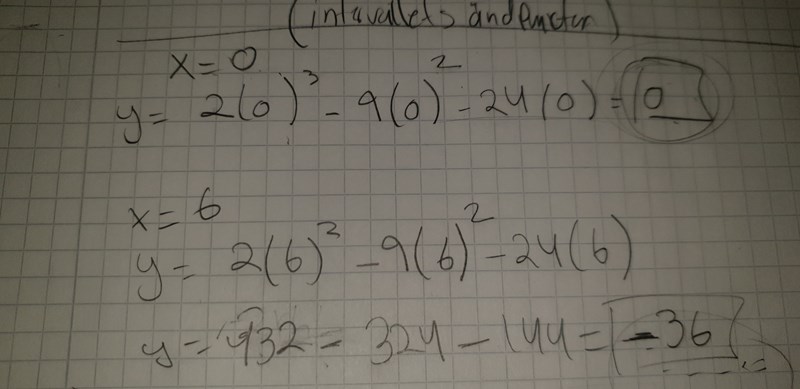 (intervallets ändpunkter)
x = 0
y = 2(0)³ - 9(0)² - 24(0) = 0
x = 6
y = 2(6)³ - 9(6)² - 24(6)
y = 432 - 324 - 144 = -36